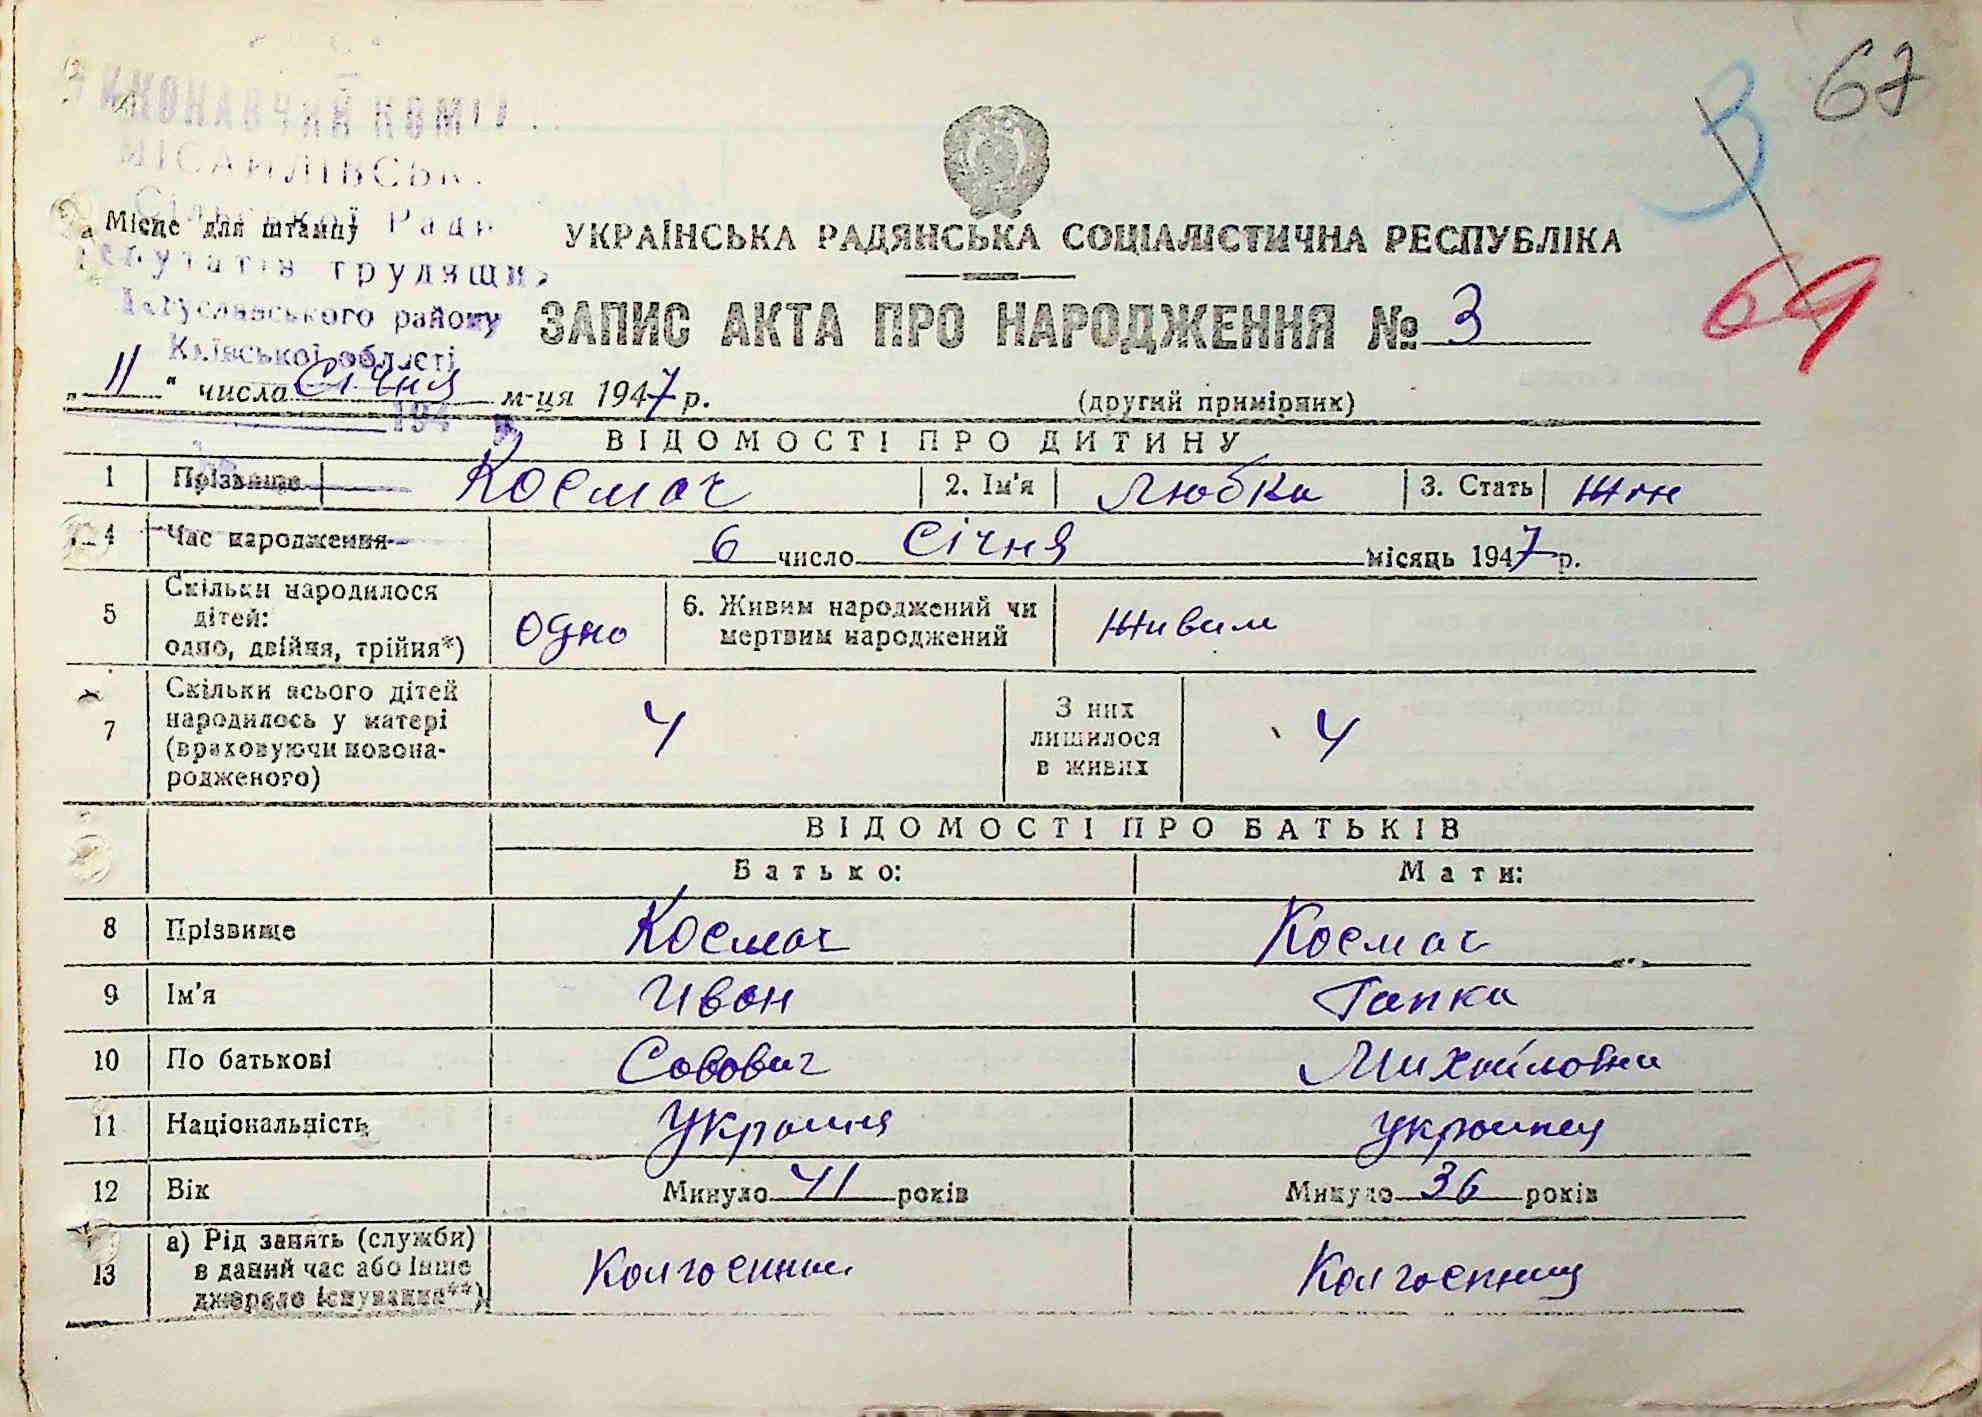 67
3
ВИКОНАВЧИЙ КОМІТ
МІСАЙЛІВСЬК
Сільської Ради
Місце для штампу
депутатів трудящих
УКРАЇНСЬКА РАДЯНСЬКА СОЦІАЛІСТИЧНА РЕСПУБЛІКА
69
Богуславського району
Київської області
ЗАПИС АКТА ПРО НАРОДЖЕННЯ № 3
„ 11 “ числа Січня м-ця 1947 р.
(другий примірник)
194
ВІДОМОСТІ ПРО ДИТИНУ
1 Прізвище Космач 2. Ім'я Любка 3. Стать жін
4 Час народження 6 число Січня місяць 1947 р.
5 Скільки народилося дітей: одно, двійня, трійня*) одно 6. Живим народжений чи мертвим народжений живим
7 Скільки всього дітей народилось у матері (враховуючи новонародженого) 4 З них лишилося в живих 4
ВІДОМОСТІ ПРО БАТЬКІВ
Батько: Мати:
8 Прізвище Космач Космач
9 Ім'я Иван Гапка
10 По батькові Савович Михайловна
11 Національність
12 Вік Минуло 41 років Минуло 36 років
13 а) Рід занять (служби) в даний час або інше джерело існування**) Колгоспник Колгоспниця